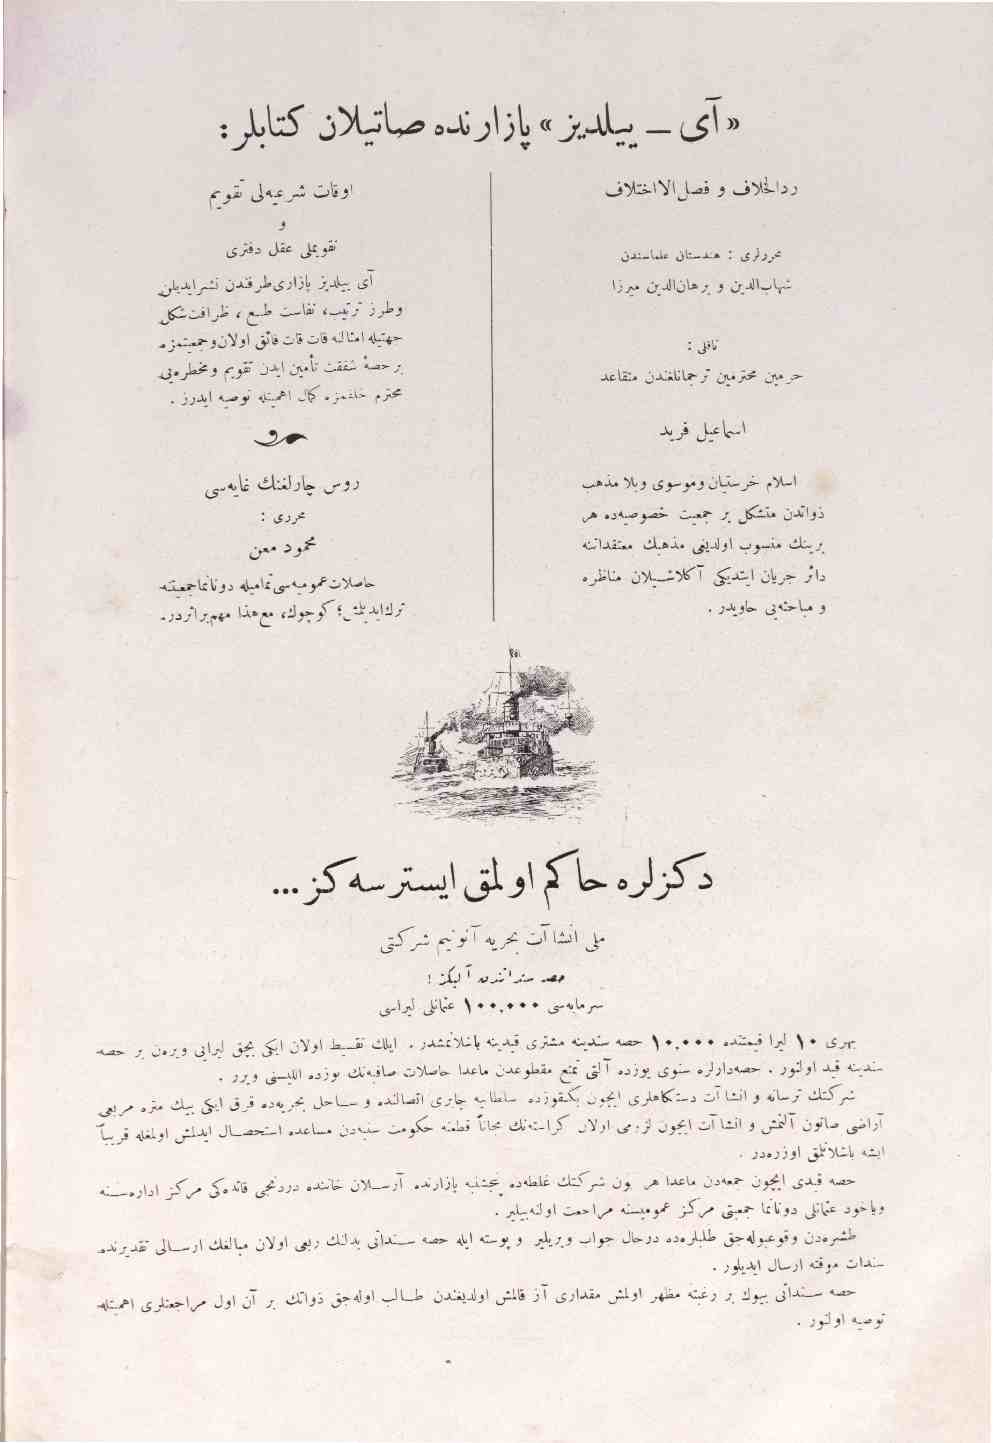 «آی ـ ییلدیز» پازارنده صاتیلان كتابلر :
ردالخلاف و فصل الاختلاف
محررلری : هندستان علماسندن
شهاب‌الدین و برهان‌الدین میرزا
ناقلی :
حرمین محترمین ترجمانلغندن متقاعد
اسماعیل فرید
اسلام خرستیان وموسوی وبلا مذهب
ذواتدن متشكل بر جمعیت خصوصیه‌ده هر
برینك منسوب اولدیغی مذهبك معتقداتنه
دائر جریان ایتدیكی آكلاشیلان مناظره
و مباحثه‌یی حاویدر .
اوقات شرعیه‌لی تقویم
و
تقویملی عقل دفتری
آی ییلدیز پازاری طرفندن نشر ایدیلن
وطرز ترتیب، نفاست طبع ، ظرافت شكل
جهتیله امثالنه قات قات فائق اولان وجمعیتمزه
بر حصۀ شفقت تأمین ایدن تقویم ومخطره‌یی
محترم خلقمزه كمال اهمیتله توصیه ایدرز .
روس چارلغنك غایه‌سی
محرری :
محمود معن
حاصلات عمومیه‌سی تمامیله دونانما جمعیتنه
ترك ایدیلمش؛ كوچوك، مع هذا مهم بر اثردر.
دكزلره حاكم اولمق ایسترسه‌كز...
ملی انشاآت بحریه آنونیم شركتی
حصه سنداتندن آلیكز !
سرمایه‌سی ١٠٠,٠٠٠ عثمانلی لیراسی
بهری ١٠ لیرا قیمتنده ١٠,٠٠٠ حصه سندینه مشتری قیدینه باشلانمشدر . ایلك تقسیط اولان ایكی بچق لیرایی ویرەن بر حصه
سندینه قید اولنور . حصه‌دارلره سنوی یوزده آلتی تمتع مقطوعدن ماعدا حاصلات صافیه‌نك یوزده اللیسنی ویرر .
شركتك ترسانه و انشاآت دستكاهلری ایچون بكقوزده سلطانیه چایری اتصالنده و ساحل بحریه‌ده قرق ایكی بیك متره مربعی
آراضی صاتون آلنمش و انشاآت ایچون لزومی اولان كراسته‌نك مجاناً قطعنه حكومت سنیه‌دن مساعده استحصال ایدلمش اولمغله قریباً
ایشه باشلانلق اوزره‌در .
حصه قیدی ایچون جمعه‌دن ماعدا هر كون شركتك غلطه‌ده پنجشنبه پازارنده آرسلان خاننده دردنجی قاتده‌كی مركز اداره‌سنه
ویاخود عثمانلی دونانما جمعیتی مركز عمومیسنه مراجعت اولنه‌بیلیر .
طشره‌دن وقوعبوله‌جق طلبلره‌ده درحال جواب ویریلیر و پوسته ایله حصه سنداتی بدلنك ربعی اولان مبالغك ارسالی تقدیرنده
سندات موقته ارسال ایدیلور .
حصه سنداتی بیوك بر رغبته مظهر اولمش مقداری آز قالمش اولدیغندن طالب اوله‌جق ذواتك بر آن اول مراجعتلری اهمیتله
توصیه اولنور .